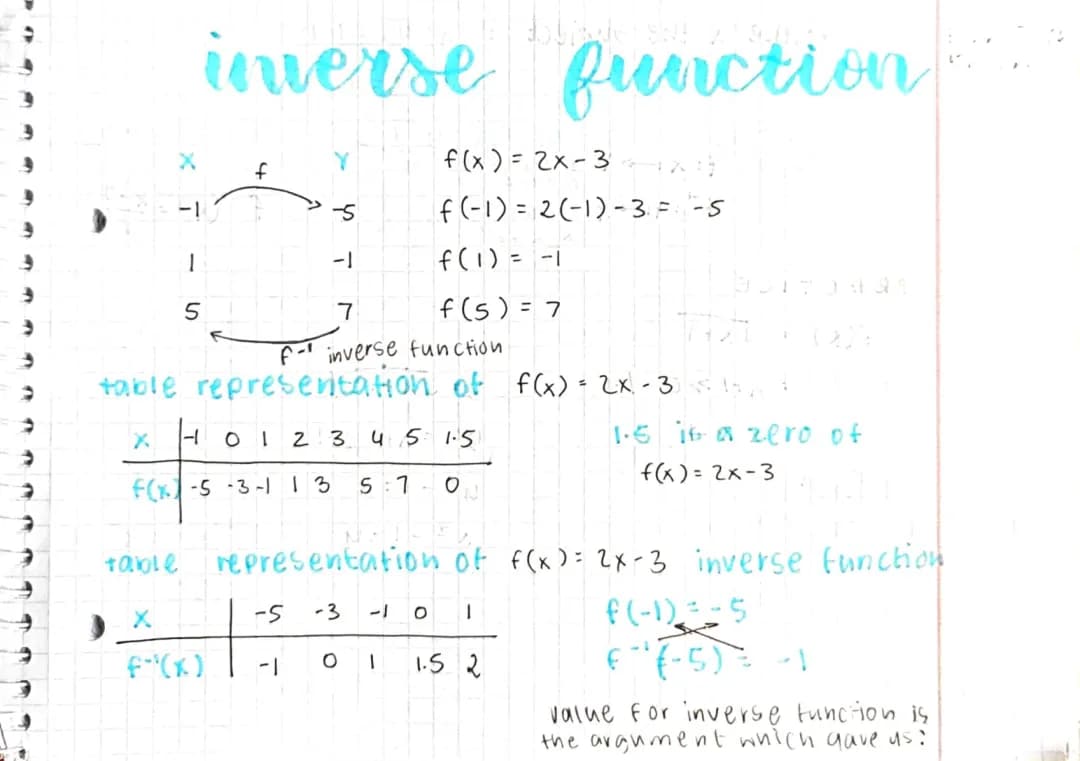 inverse function
X f Y f(x) = 2x - 3
-1 -5 f(-1) = 2(-1) - 3 = -5
1 -1 f(1) = -1
5 7 f(5) = 7
f⁻¹ inverse function
table representation of f(x) = 2x - 3
x -1 0 1 2 3 4 5 1.5
f(x) -5 -3 -1 1 3 5 7 0
1.5 is a zero of
f(x) = 2x - 3
table representation of f(x) = 2x - 3 inverse function
x -5 -3 -1 0 1
f⁻¹(x) -1 0 1 1.5 2
f(-1) = -5
f⁻¹(-5) = -1
value for inverse function is
the argument which gave us: